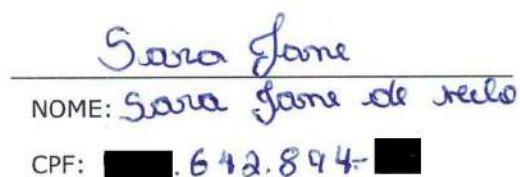 Sara Jane
NOME: Sara Jane de Melo
CPF: .642.894-